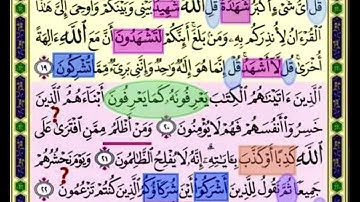 قُلْ أَىُّ شَىْءٍ أَكْبَرُ شَهَٰدَةً قُلِ ٱللَّهُ شَهِيدٌۢ بَيْنِى وَبَيْنَكُمْ وَأُوحِىَ إِلَىَّ هَٰذَا
ٱلْقُرْءَانُ لِأُنذِرَكُم بِهِۦ وَمَنۢ بَلَغَ أَئِنَّكُمْ لَتَشْهَدُونَ أَنَّ مَعَ ٱللَّهِ ءَالِهَةً
أُخْرَىٰ قُل لَّآ أَشْهَدُ قُلْ إِنَّمَا هُوَ إِلَٰهٌ وَٰحِدٌ وَإِنَّنِى بَرِىٓءٌ مِّمَّا تُشْرِكُونَ ١٩
ٱلَّذِينَ ءَاتَيْنَٰهُمُ ٱلْكِتَٰبَ يَعْرِفُونَهُۥ كَمَا يَعْرِفُونَ أَبْنَآءَهُمُ ٱلَّذِينَ
خَسِرُوٓا۟ أَنفُسَهُمْ فَهُمْ لَا يُؤْمِنُونَ ٢٠ وَمَنْ أَظْلَمُ مِمَّنِ ٱفْتَرَىٰ عَلَى
ٱللَّهِ كَذِبًا أَوْ كَذَّبَ بِـَٔايَٰتِهِۦٓ إِنَّهُۥ لَا يُفْلِحُ ٱلظَّٰلِمُونَ ٢١ وَيَوْمَ نَحْشُرُهُمْ
جَمِيعًا ثُمَّ نَقُولُ لِلَّذِينَ أَشْرَكُوٓا۟ أَيْنَ شُرَكَآؤُكُمُ ٱلَّذِينَ كُنتُمْ تَزْعُمُونَ ٢٢